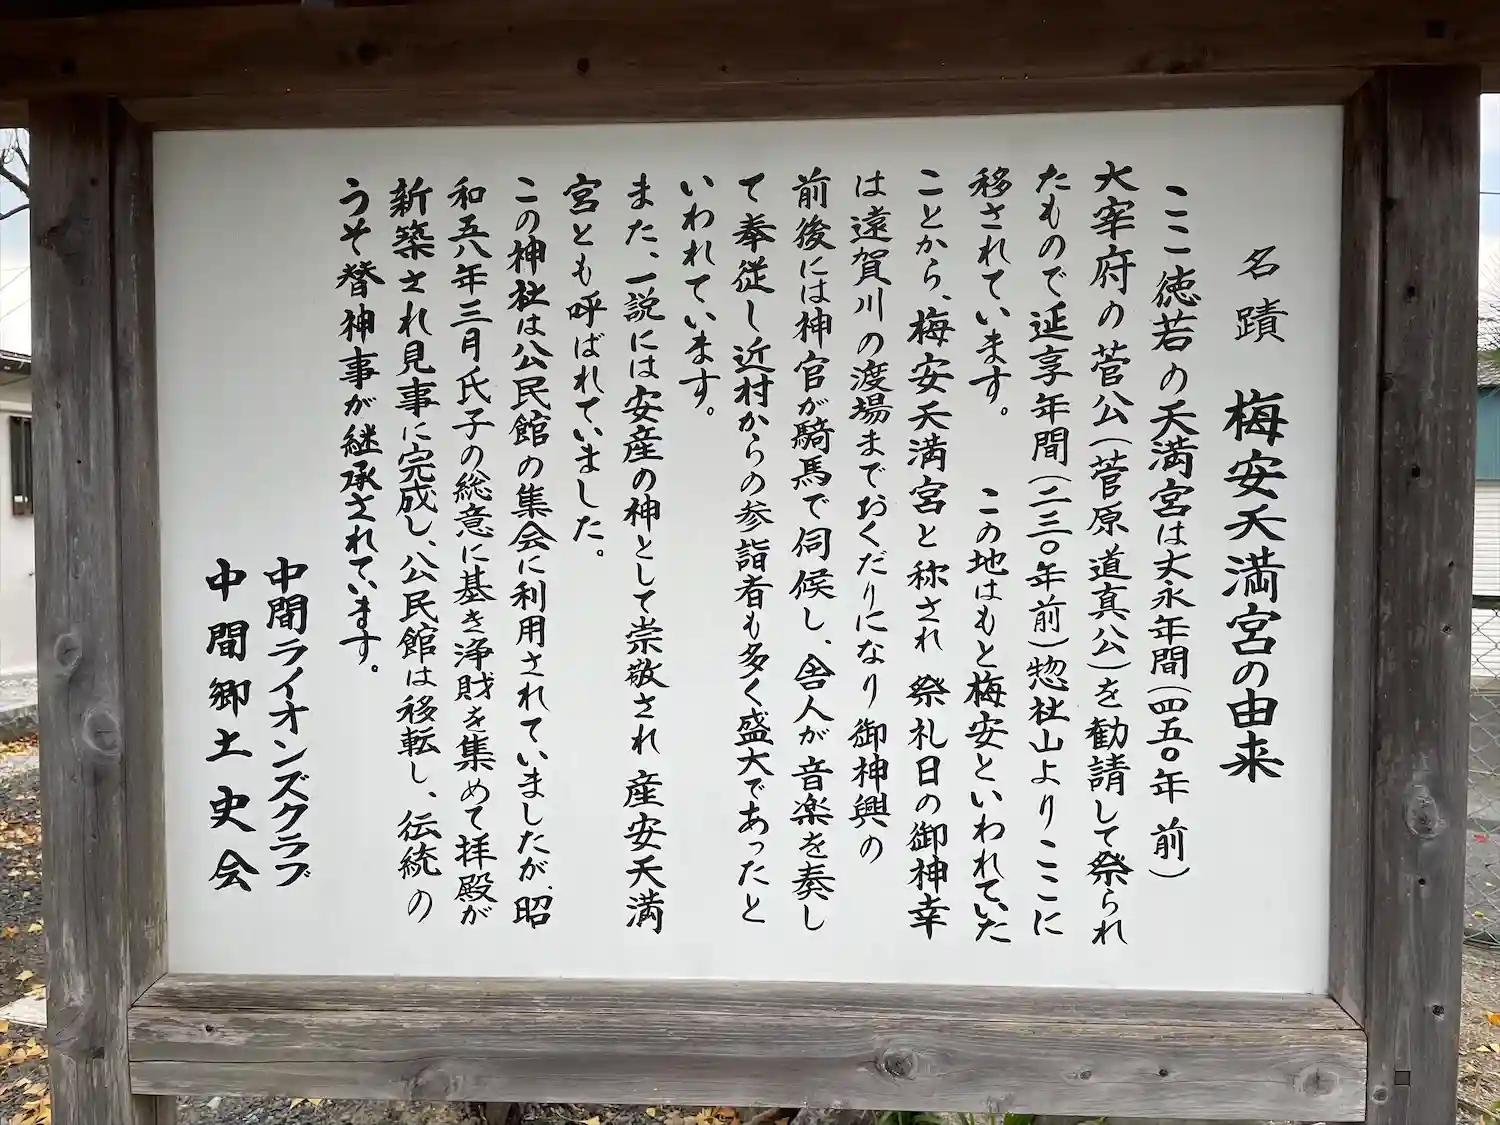 名蹟 梅安天満宮の由来
ここ徳若の天満宮は大永年間(四五〇年前)
大宰府の菅公(菅原道真公)を勧請して祭られ
たもので延享年間(二三〇年前)惣社山よりここに
移されています。 この地はもと梅安といわれていた
ことから、梅安天満宮と称され 祭礼日の御神幸
は遠賀川の渡場までおくだりになり 御神輿の
前後には神官が騎馬で伺候し、舎人が音楽を奏し
て奉従し近村からの参詣者も多く盛大であったと
いわれています。
また、一説には安産の神として崇敬され 産安天満
宮とも呼ばれていました。
この神社は公民館の集会に利用されていましたが、昭
和五八年三月氏子の総意に基き浄財を集めて拝殿が
新築され見事に完成し、公民館は移転し、伝統の
うそ替神事が継承されています。
中間ライオンズクラブ
中間郷土史会